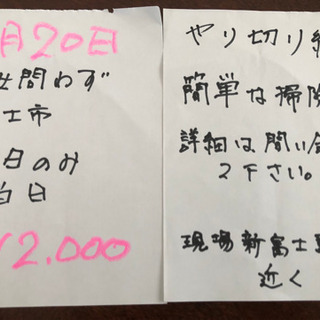 月20日
問わず
士市
日のみ
白日
12.000
やり切り
簡単な掃除
詳細は問い合
て下さい。
現場新富士
近く